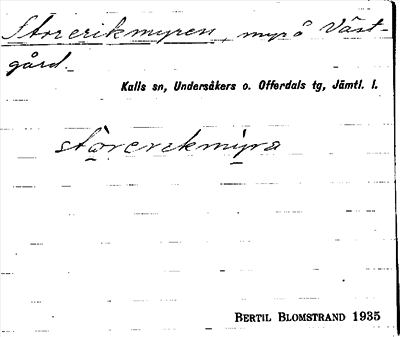 Storerikmyren, myr å Väst-
gård.
Kalls sn, Undersåkers o. Offerdals tg, Jämtl. l.
storerikmyra
BERTIL BLOMSTRAND 1935